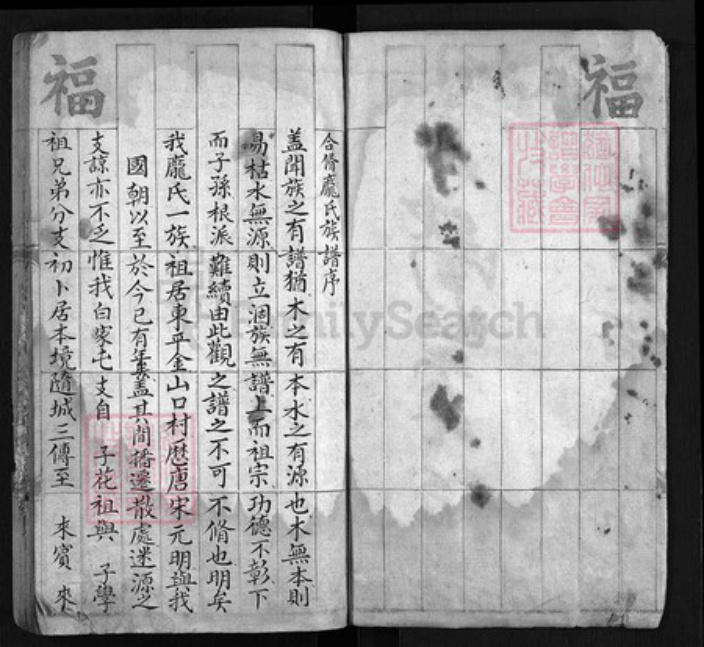 福
福
合脩龐氏族譜序
盖聞族之有譜猶木之有本水之有源也木無本則
易枯水無源則立涸族無譜上而祖宗功德不彰下
而子孫根派難續由此觀之譜之不可不脩也明矣
我龐氏一族祖居東平金山口村歷唐宋元明與我
國朝以至於今已有年矣盖其間播遷散處迷源之
支諒亦不乏惟我白家屯支自 子花祖與 子學
祖兄弟分支初卜居本境隨城三傳至 來賓 來
FamilySearch